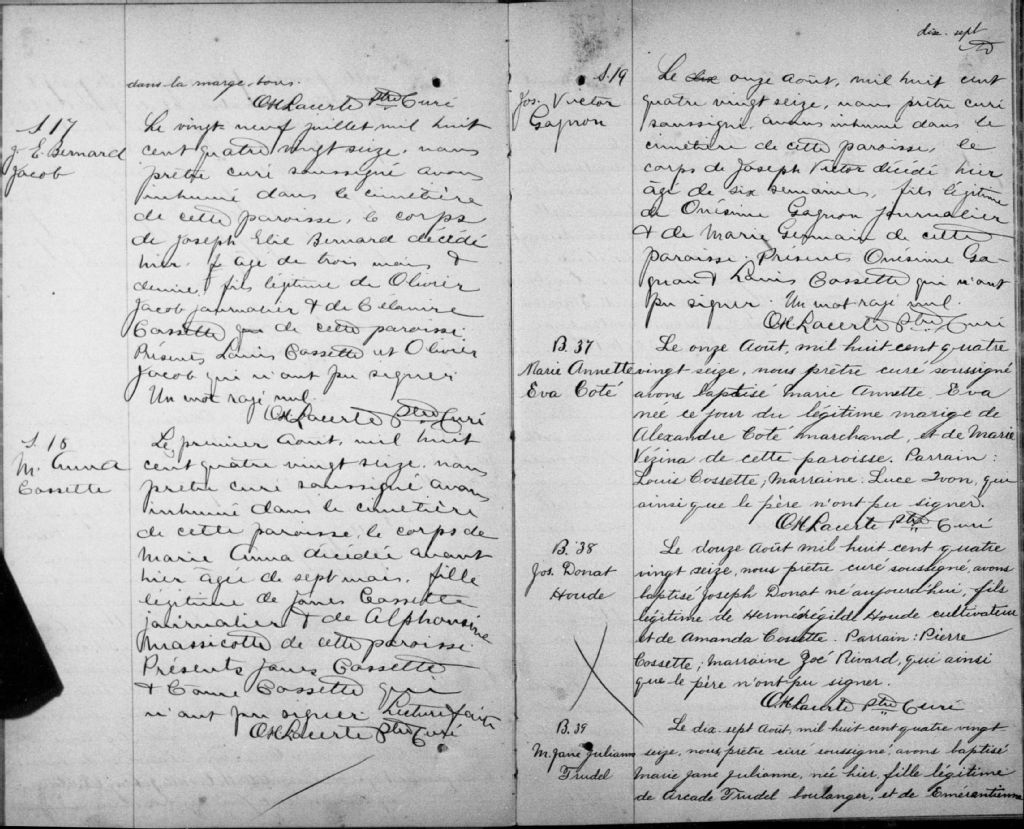 dans la marge, bons.
OH Lacerte Ptre Curé
S. 17
J. E. Bernard
Jacob
Le vingt neuf juillet mil huit
cent quatre vingt seize, nous
prêtre curé soussigné avons
inhumé dans le cimetière
de cette paroisse, le corps
de Joseph Elie Bernard décédé
hier. agé de trois mois &
demie, fils légitime de Olivier
Jacob journalier & de Célanire
Cossette de cette paroisse.
Présents Louis Cossette et Olivier
Jacob qui n'ont pu signer
Un mot rayé nul.
OH Lacerte Ptre Curé
S. 18
M. Anna
Cossette
Le premier Août, mil huit
cent quatre vingt seize, nous
prêtre curé soussigné avons
inhumé dans le cimetière
de cette paroisse, le corps de
Marie Anna décédée avant
hier agée de sept mois, fille
légitime de James Cossette
journalier & de Alphonsine
Massicotte de cette paroisse
Présents James Cossette
& Come Cossette qui
n'ont pu signer Lecture faite
OH Lacerte Ptre Curé
dix-sept
S. 19
Jos. Victor
Gagnon
Le six onze Août, mil huit cent
quatre vingt seize, nous prêtre curé
soussigné, avons inhumé dans le
cimetière de cette paroisse, le
corps de Joseph Victor décédé hier
âgé de six semaines, fils légitime
de Onésime Gagnon journalier
& de Marie Germain de cette
paroisse. Présents Onésime Ga-
gnon & Louis Cossette qui n'ont
pu signer. Un mot rayé nul.
OH Lacerte Ptre Curé
B. 37
Marie Annette
Eva Coté
Le onze Août, mil huit cent quatre
vingt seize, nous prêtre curé soussigné
avons baptisé Marie Annette Eva
née ce jour du légitime marige de
Alexandre Coté marchand, et de Marie
Vézina de cette paroisse. Parrain:
Louis Cossette; Marraine: Luce Ivon, qui
ainsi que le père n'ont pu signer.
OH Lacerte Ptre Curé
B. 38
Jos. Donat
Houde
Le douze Août mil huit cent quatre
vingt seize, nous prêtre curé soussigné, avons
baptisé Joseph Donat né aujourd'hui, fils
légitime de Herménégilde Houde cultivateur
et de Amanda Cossette. Parrain: Pierre
Cossette; Marraine Zoé Rivard, qui ainsi
que le père n'ont pu signer.
OH Lacerte Ptre Curé
B. 39
M. Jane Julianne
Trudel
Le dix sept Août, mil huit cent quatre vingt
seize, nous prêtre curé soussigné avons baptisé
Marie Jane Julianne, née hier, fille légitime
de Arcade Trudel boulanger, et de Emérantienne